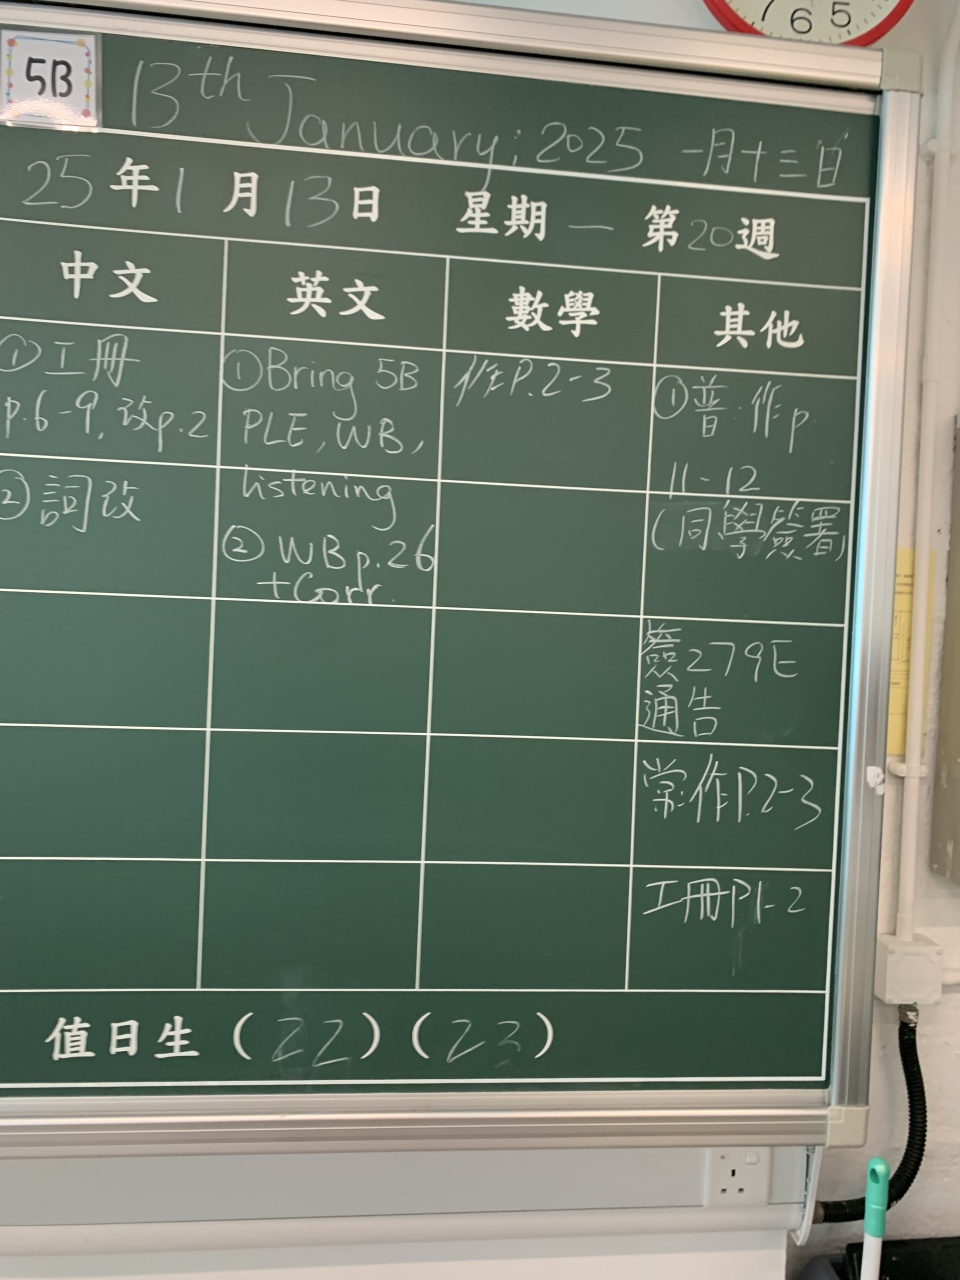 7 6 5
5B
13th January, 2025 一月十三日
25年1月13日 星期一 第20週
中文
英文
數學
其他
①工冊
p.6-9, 改p.2
②詞改
①Bring 5B
PLE, WB,
listening
②WB p.26
+Corr.
作P.2-3
①普:作p.
11-12
(同學簽署)
簽279E
通告
常:作P.2-3
工冊P1-2
值日生(22)(23)